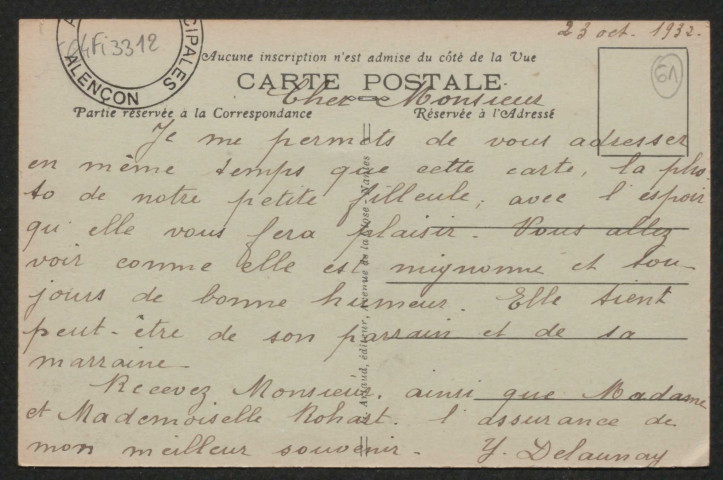 23 oct. 1932.
4Fi3312
CIPALES
ALENÇON
61
Aucune inscription n'est admise du côté de la Vue
CARTE POSTALE
Cher Monsieur
Partie réservée à la Correspondance
Réservée à l'Adresse
Je me permets de vous adresser
en même temps que cette carte, la pho-
to de notre petite filleule, avec l'espoir
qu'elle vous fera plaisir. Vous allez
voir comme elle est mignonne et tou-
jours de bonne humeur. Elle tient
peut-être de son parrain et de sa
marraine
Recevez Monsieur, ainsi que Madame
et Mademoiselle Rohart. l'assurance de
mon meilleur souvenir. Y. Delaunay
éditeur, avenue de la Nantes